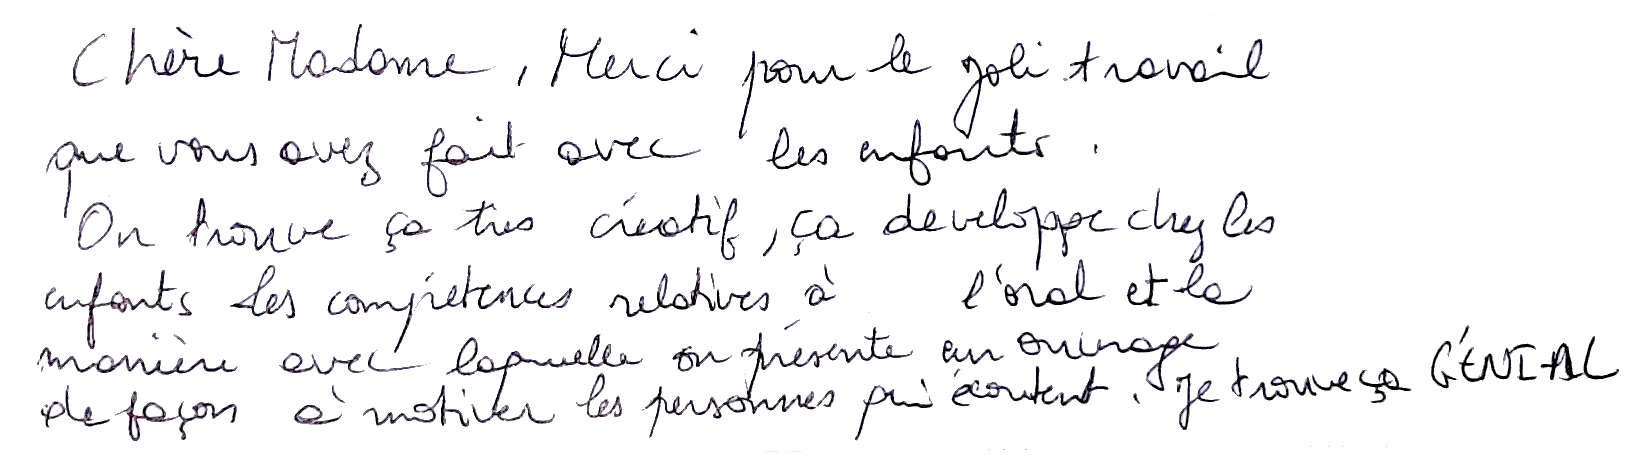 Chère Madame, Merci pour le joli travail
que vous avez fait avec les enfants.
On trouve ça très créatif, ça developpe chez les
enfants les compétences relatives à l'oral et la
manière avec laquelle on présente un ouvrage
de façon à motiver les personnes qui écoutent. Je trouve ça GÉNIAL